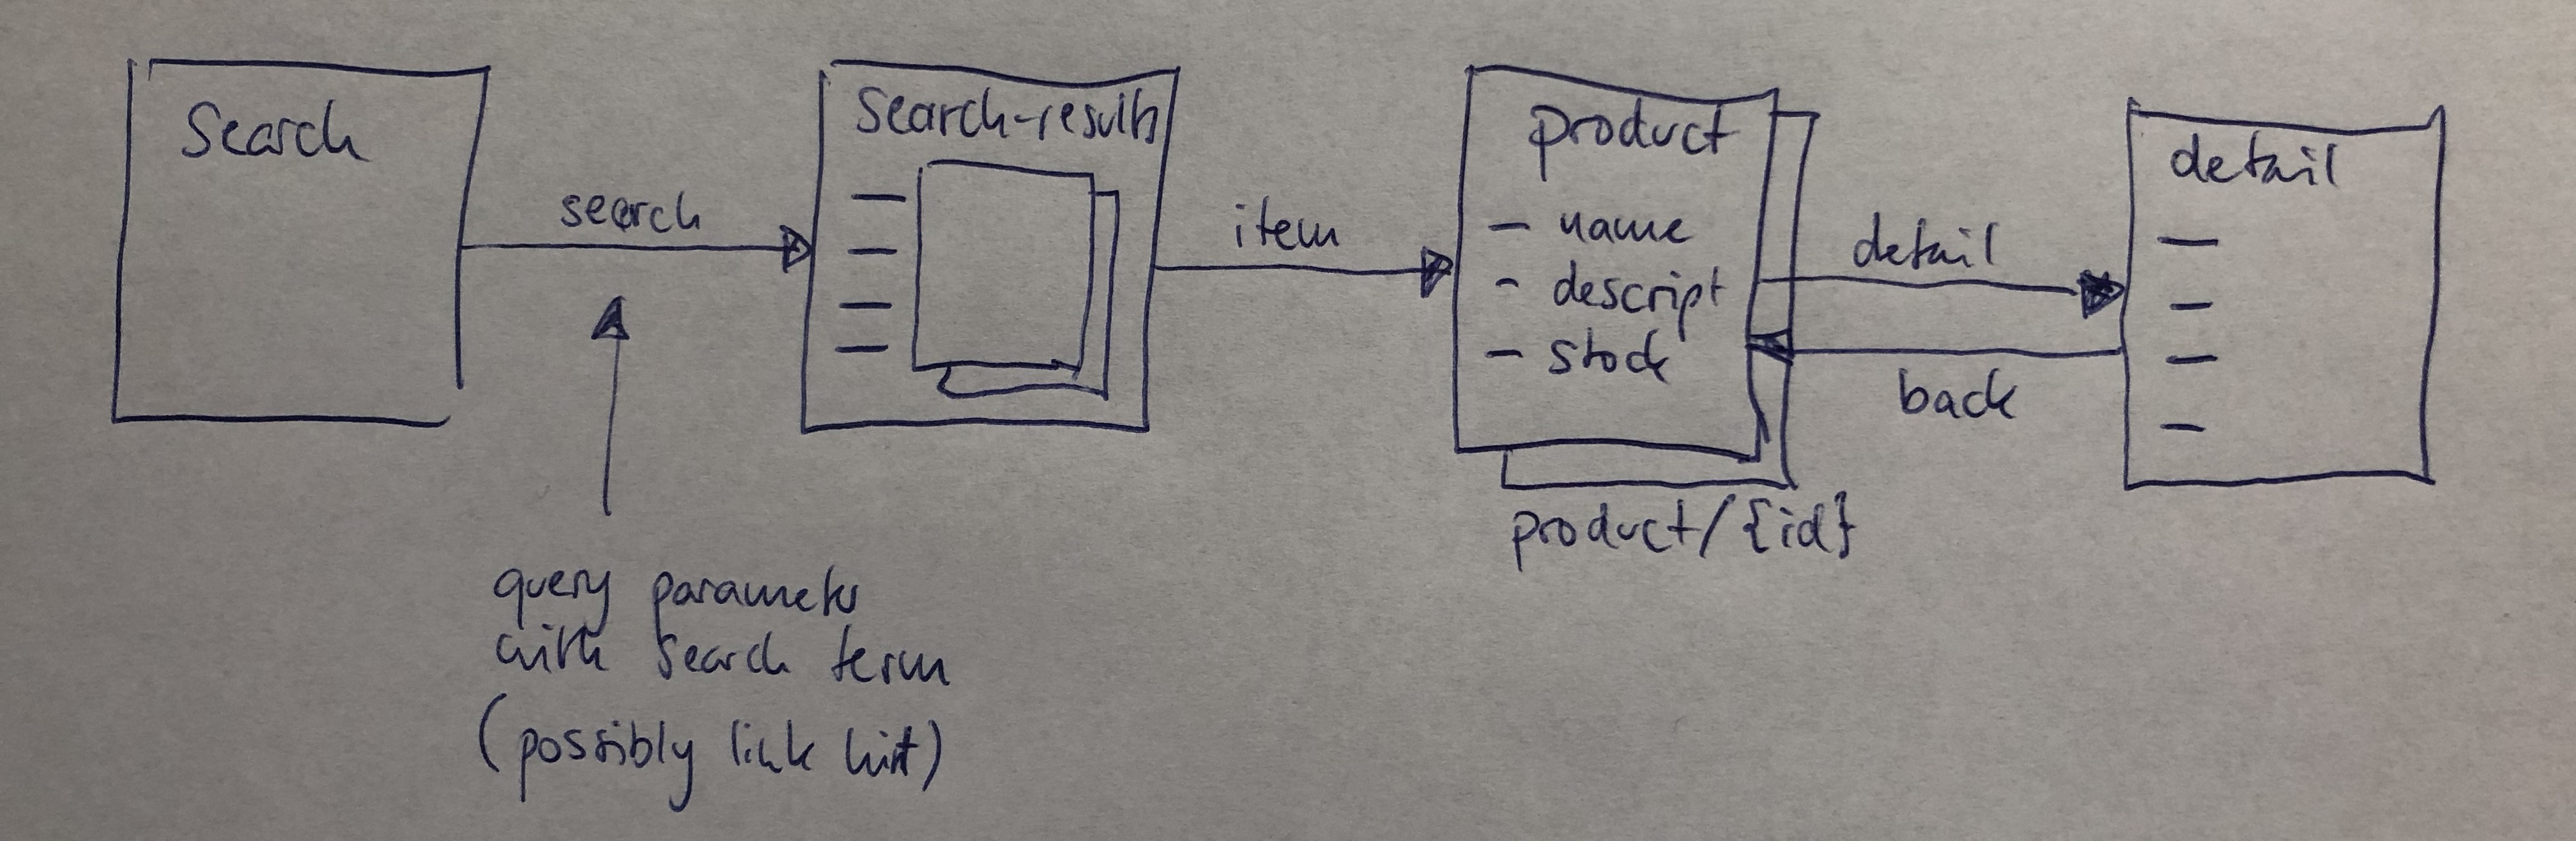 Search
search
query parameter
with search term
(possibly link hint)
search-results
item
product
- name
- descript
- stock
product/{id}
detail
back
detail